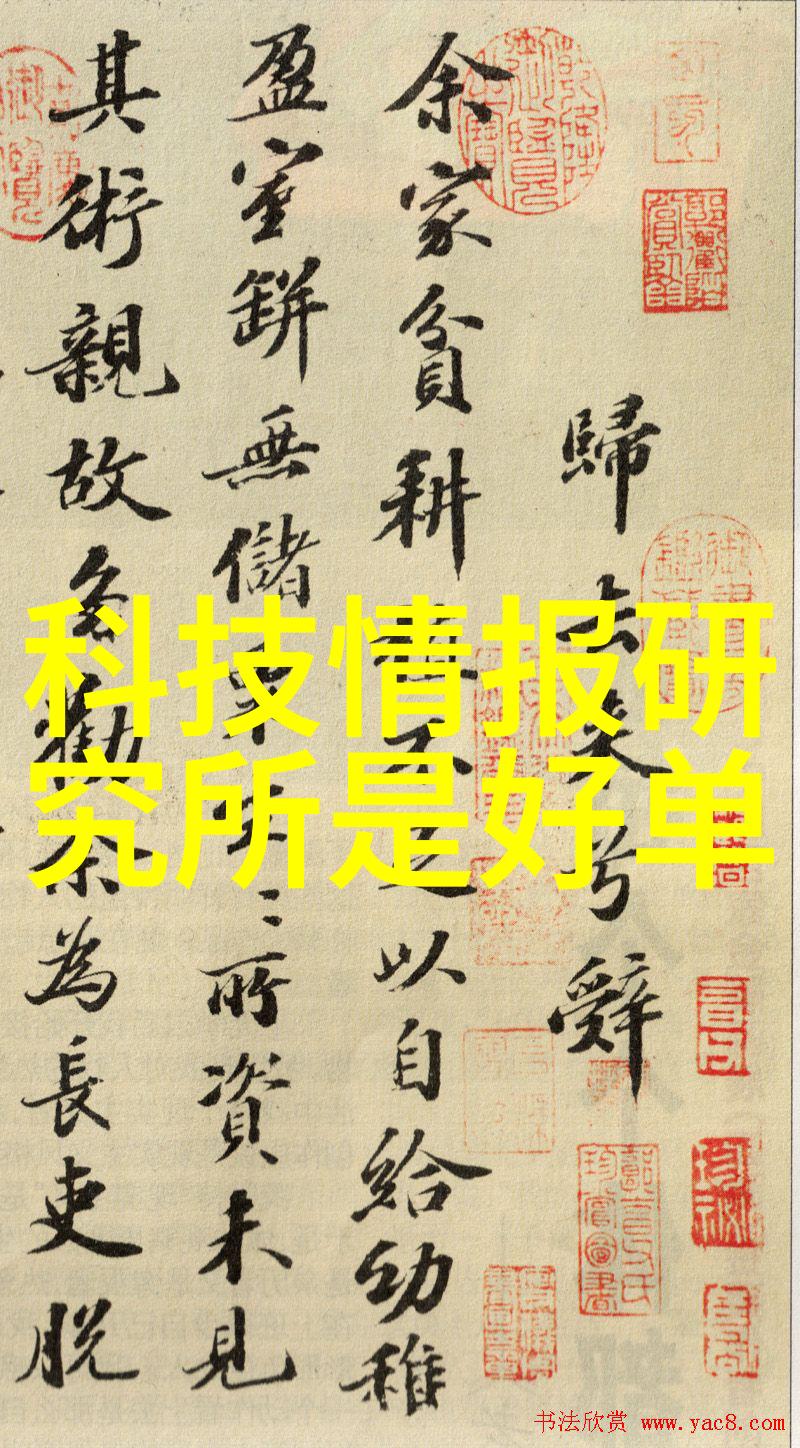 歸去来兮辭
余家貧耕植不足以自給幼稚
盈室缾無儲粟生〻所資未見
其術親故多勸余為長吏脫
科技情报研
究所是好单
书法欣赏 www.yac8.com